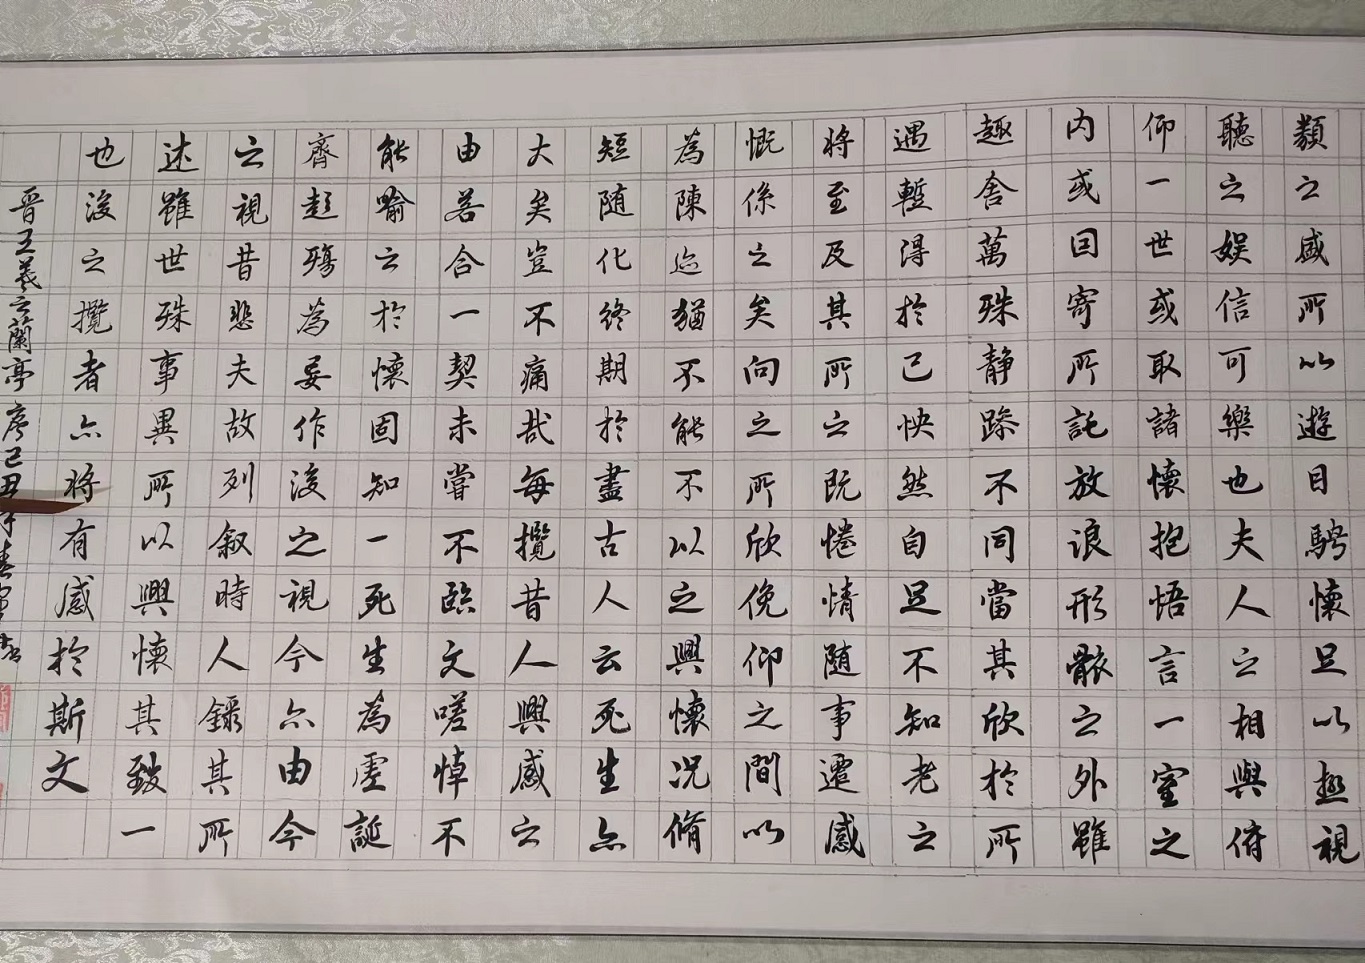 類之盛所以遊目騁懷足以極視
聽之娱信可樂也夫人之相與俯
仰一世或取諸懷抱悟言一室之
内或因寄所託放浪形骸之外雖
趣舍萬殊静躁不同當其欣於所
遇暫得於己怏然自足不知老之
將至及其所之既惓情随事遷感
慨係之矣向之所欣俛仰之間以
為陳迹猶不能不以之興懷况脩
短随化終期於盡古人云死生亦
大矣豈不痛哉每攬昔人興感之
由若合一契未嘗不臨文嗟悼不
能喻之於懷固知一死生為虚誕
齊彭殤為妄作後之視今亦由今
之視昔悲夫故列叙時人録其所
述雖世殊事異所以興懷其致一
也後之攬者亦將有感於斯文
晋王羲之蘭亭序己丑年春書